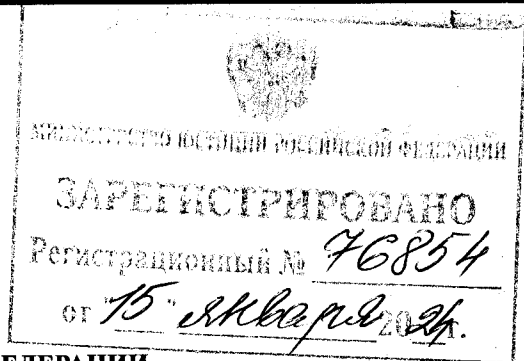 МИНИСТЕРСТВО ЮСТИЦИИ РОССИЙСКОЙ ФЕДЕРАЦИИ
ЗАРЕГИСТРИРОВАНО
Регистрационный № 76854
от "15" января 2024г.
ЕДЕРАЦИИ